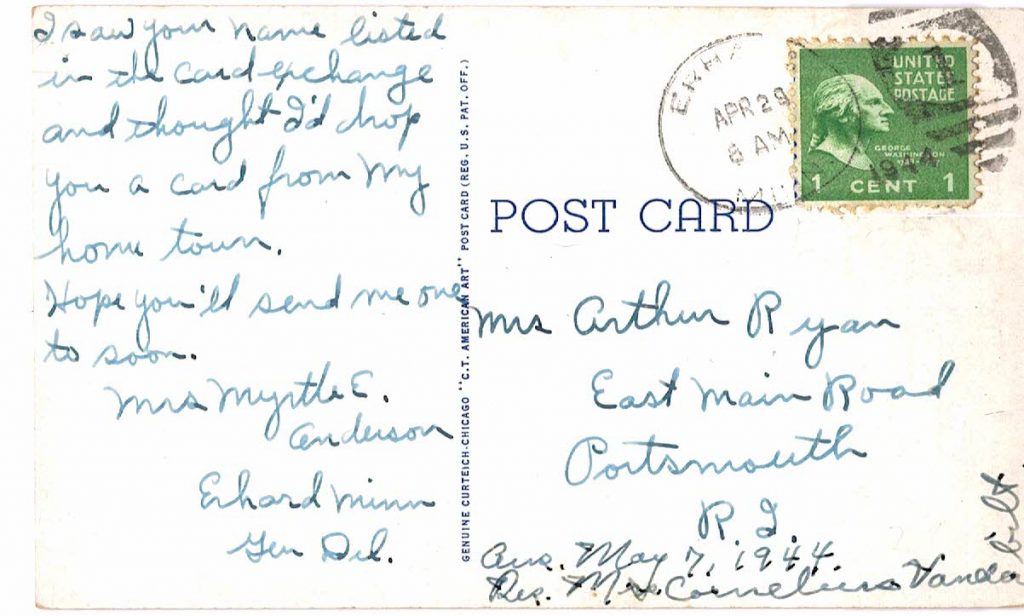 I saw your name listed
in the card exchange
and thought I'd drop
you a card from my
home town.
Hope you'll send me one
to soon.
Mrs Myrtle E.
Anderson
Erhard Minn
Gen Del.
GENUINE CURTEICH-CHICAGO "C.T. AMERICAN ART" POST CARD (REG. U.S. PAT. OFF.)
APR 29
8 AM
1944
UNITED
STATES
POSTAGE
GEORGE
WASHINGTON
1 CENT 1
POST CARD
Mrs Arthur Ryan
East Main Road
Portsmouth
R.I.
Ans. May 7, 1944.
Res. Mrs. Cornelius Vandabilt